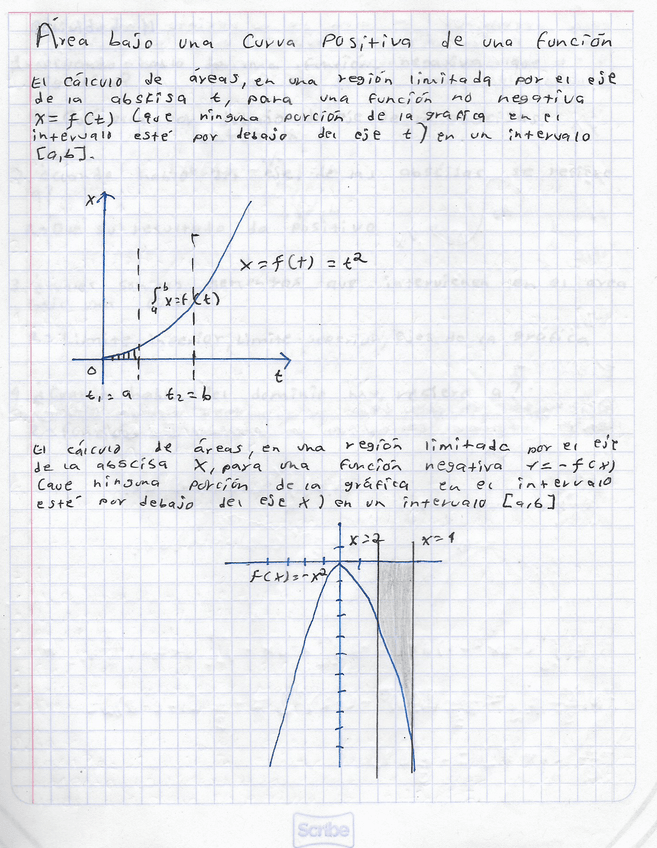 Área bajo una Curva Positiva de una función
El cálculo de áreas, en una región limitada por el eje
de la abscisa t, para una función no negativa
x = f(t) (que ninguna porción de la gráfica en el
intervalo esté por debajo del eje t) en un intervalo
[a,b].
x
x = f(t) = t²
∫ₐᵇ x=f(t)
0
t
t₁ = a t₂ = b
El cálculo de áreas, en una región limitada por el eje
de la abscisa X, para una función negativa Y = -f(x)
(que ninguna porción de la gráfica en el intervalo
esté por debajo del eje x) en un intervalo [a,b]
x=2 x=4
f(x)=-x²
Scribe